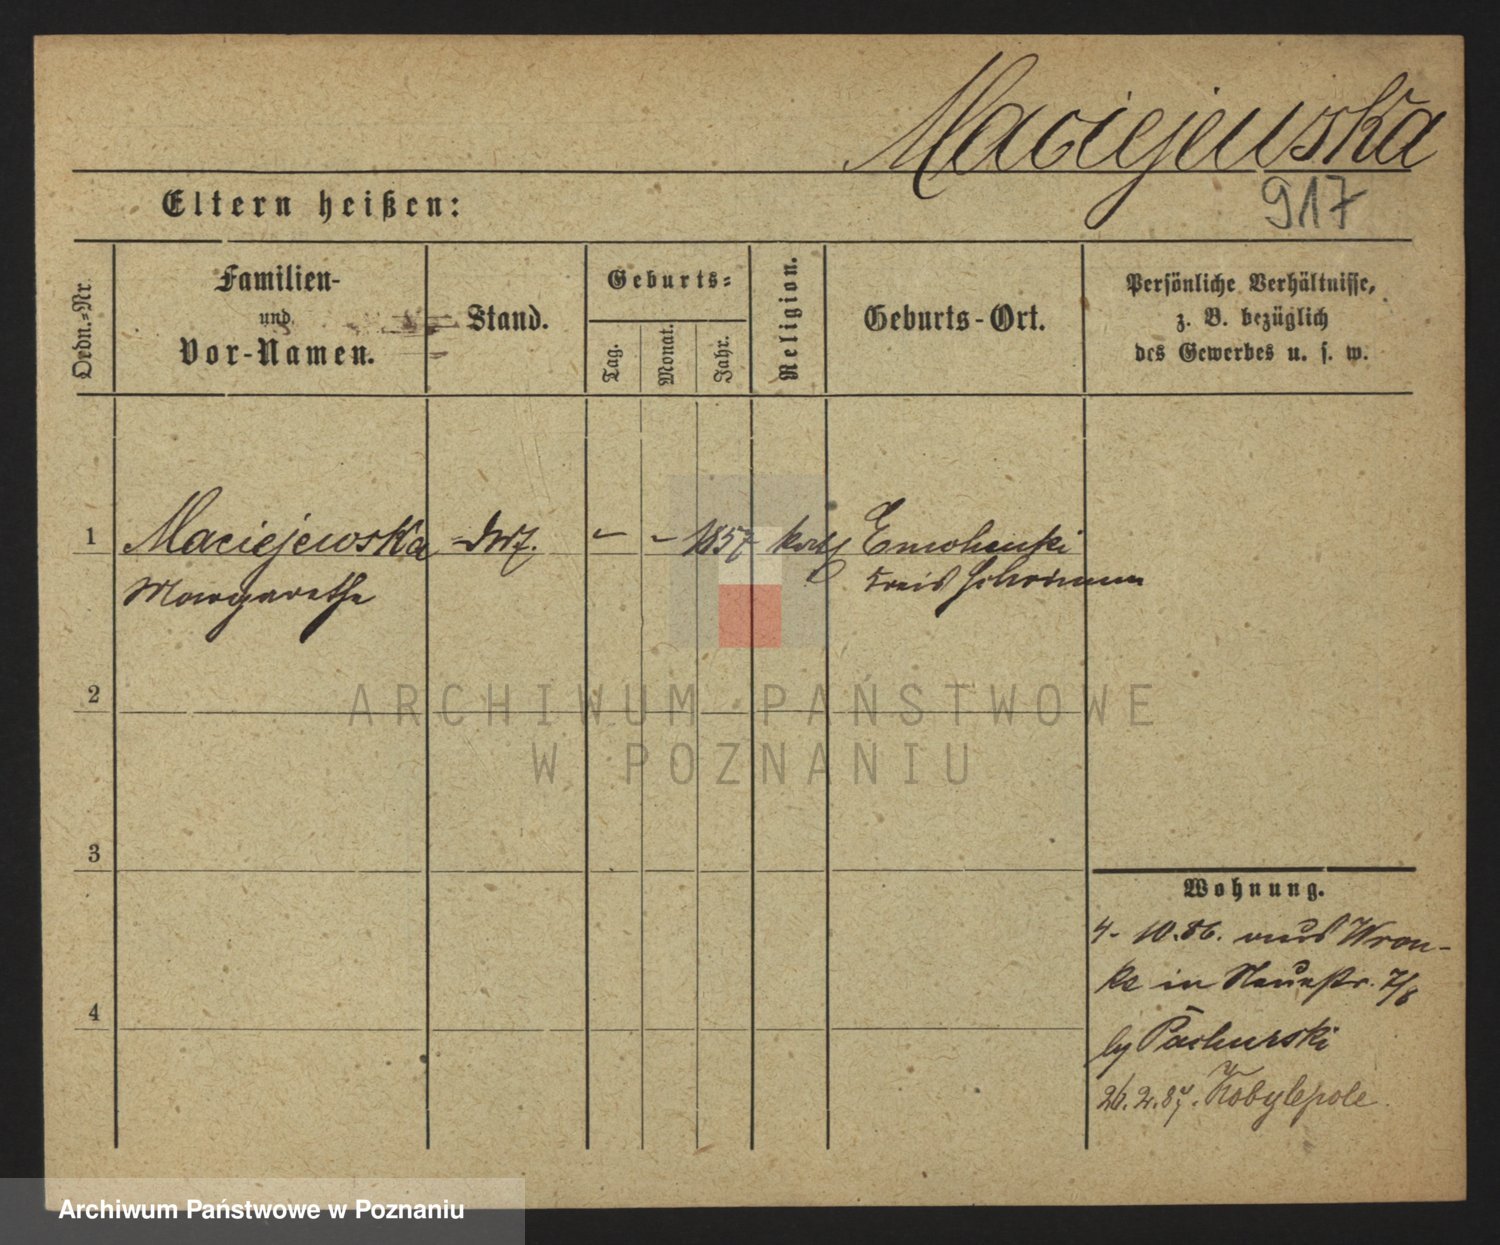 Maciejewska
917
Eltern heißen:
Ordn.-Nr.
Familien-
und
Vor-Namen.
Stand.
Geburts-
Tag.
Monat.
Jahr.
Religion.
Geburts-Ort.
Persönliche Verhältnisse,
z. B. bezüglich
des Gewerbes u. s. w.
1
Maciejewska
Margarethe
- - 1857 kath
Kreis Schrimm
2
3
4
Wohnung.
4. 10.86. aus Wron-
ke in Neuestr. 7/8
by Pachurski
26.2.87. Kobylepole.
ARCHIWUM PAŃSTWOWE
W POZNANIU
Archiwum Państwowe w Poznaniu